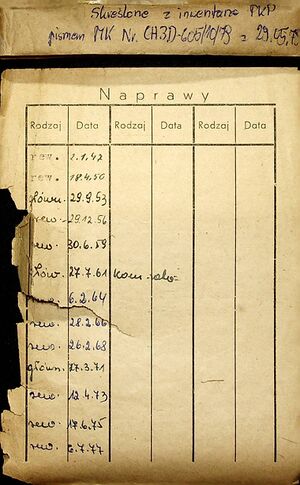 Skreślone z inwentarza PKP
pismem MK Nr. CH3D-605/10/79 z 29.05.79
Naprawy
Rodzaj Data Rodzaj Data Rodzaj Data
rew. 2.1.47
rew. 18.4.50
główn. 29.9.53
rew. 29.12.56
rew. 30.6.59
główn. 27.7.61
rew. 6.2.64
rew. 28.2.66
rew. 26.2.68
główn. 17.3.71
rew. 12.4.73
rew. 17.6.75
rew. 6.7.77